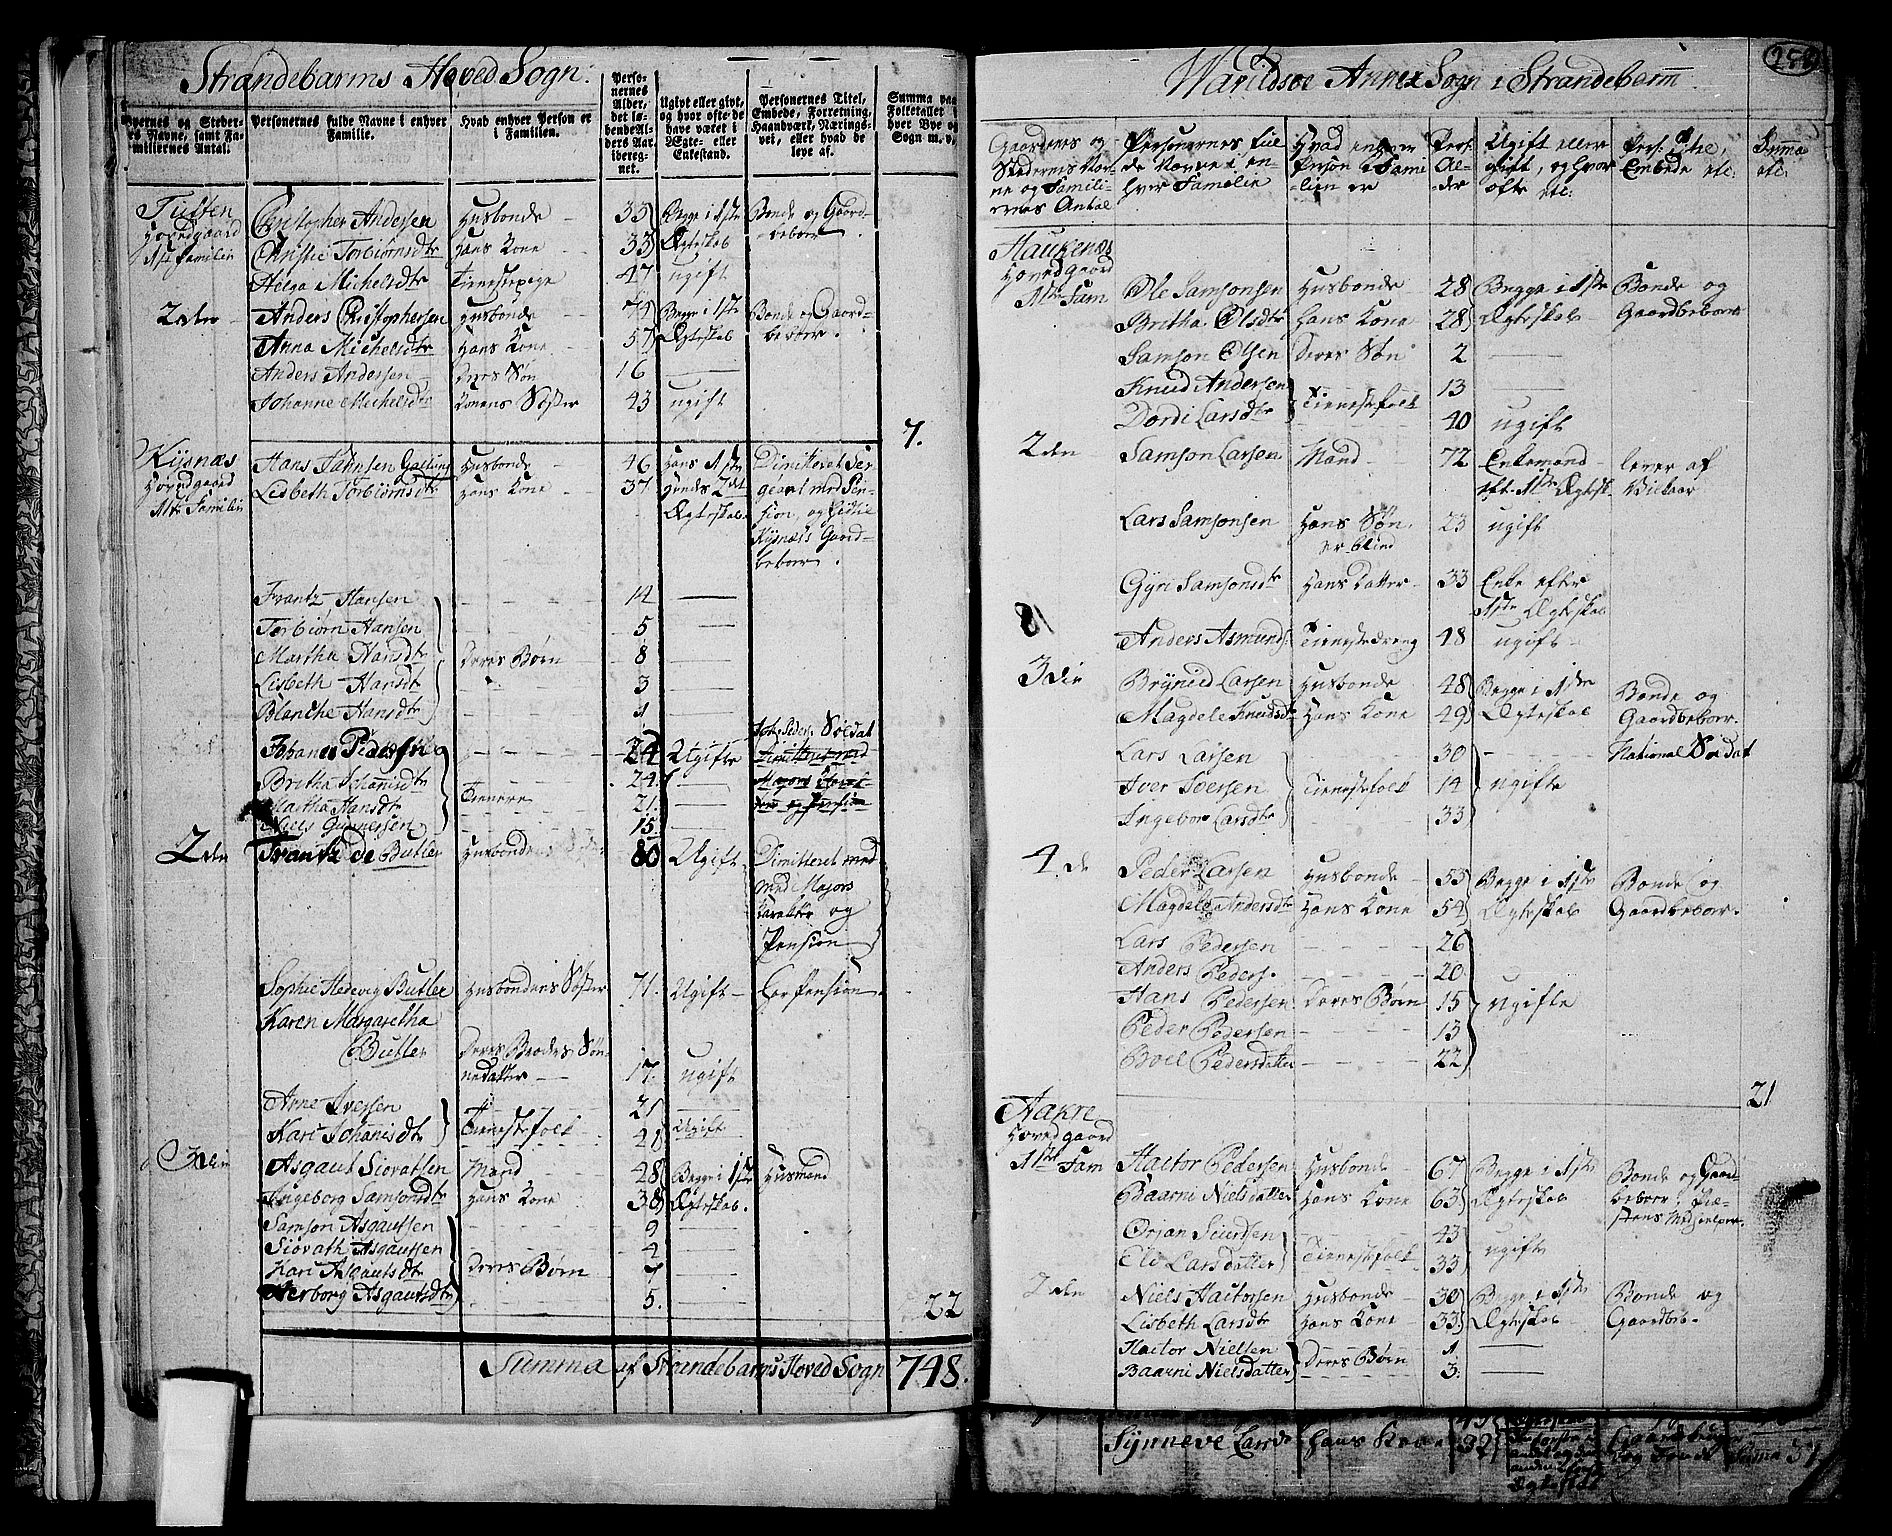 Strandebarms Hoved Sogn.
Byernes og Stedernes Navne, samt Familiernes Antal.
Personernes fulde Navne i enhver Familie.
Hvad enhver Person er i Familien.
Personernes Alder, det løbende Alders Aar iberegnet.
Ugivt eller givt, og hvor ofte de have været i Ægte- eller Enkestand.
Personernes Titel, Embede, Forretning, Haandværk, Næringsvei, eller hvad de leve af.
Summa paa Folketallet i hver Bye og Sogn m. v.
Hovedgaard 1ste Familie
Christopher Andersen Husbonde 35 Begge i 1ste Bonde og Gaard-
Christie Torbiørnsdtr Hans Kone 33 Ægteskab beboer.
Helga Michelsdtr Tienestepige 47 ugift
2den Anders Christophersen Husbonde 74 Begge i 1ste Bonde og Gaard-
Anna Michelsdtr Hans Kone 57 Ægteskab beboer.
Anders Andersen Deres Søn 16 —
Johanne Michelsdtr Konens Søster 43 ugift
7.
Kysnæs Hans Jahnsen Gallung Husbonde 46 Hans 1ste Dimitteret Ser-
Hovedgaard Lisbeth Torbiørnsdtr Hans Kone 37 Hendes 2det geant med Pen-
1ste Familie Ægteskab sion, og
Kysnæs Gaard-
beboer.
Frantz Hansen 14 —
Torbiørn Hansen 5 —
Martha Hansdtr Deres Børn 8 —
Lisbeth Hansdtr 3 —
Blanche Hansdtr 1 —
Joh: Peders: Soldat
Johanes Pedersen 24 Ugifte Dimitteret med
Britha Johanisdtr 24 — Majors
Martha Hansdtr Tienere 21 — og Pension
Niels Gunnersen 15.
2den Frantz de Butler Husbonde 80 Ugift Dimitteret med
med Majors
Caracter og
Pension
Sophie Hedevig Butler Husbondens Søster 71. Ugift Har Pension.
Karen Margaretha
Butler Deres Broders Søn-
nedatter 17. ugift
Arne Iversen 21 —
Kari Johanisdtr Tienestefolk 21 Ugift
3die Asgaut Siovatsen Mand 48 Begge i 1ste Husmand
Ingeborg Samsonsdtr Hans Kone 38 Ægteskab.
Samson Asgautsen 9 —
Siovath Asgautsen 2 —
Kari Asgautsdtr Deres Børn 7 —
Herborg Asgautsdtr 5. —
22
Summa af Strandebarms Hoved Sogn 748.
Warildsøe Annex Sogn i Strandebarm
Gaardenes og Stedernes Navne og Familiernes Antal
Personernes fulde Navne i enhver Familie
Hvad enhver Person i Familien er
Pers: Alder
Ugift eller gift, og hvor ofte etc:
Pers: Titel, Embede etc:
Summa etc:
Haukenæs
Hovedgaard
1ste Fam Ole Samsonsen Husbonde 28 Begge i 1ste Bonde og
Britha Olsdtr Hans Kone 28 Ægteskab Gaardbeboer
Samson Olsen Deres Søn 2 —
Knud Andersen Tienestefolk 13 —
Dordi Larsdtr 40 ugift
2den Samson Larsen Mand 72 Enkemand lever af
eft. 1ste Ægtesk. Vilkaar
Lars Samsonsen Hans Søn 23 ugift
er blind
Gyri Samsonsdtr Hans Datter 33 Enke efter
1ste Ægteskab
8
Anders Asmunds: Tienestedreng 18 ugift
3die Bryneld Larsen Husbonde 48 Begge i 1ste Bonde og
Magdele Knudsdtr Hans Kone 49 Ægteskab Gaardbeboer.
Lars Larsen 30 — National Soldat
Iver Iversen Tienestefolk 14 ugifte
Ingebor Larsdtr 33
4de Peder Larsen Husbonde 53 Begge i 1ste Bonde og
Magdele Andersdtr Hans Kone 54 Ægteskab Gaardbeboer.
Lars Pedersen 26
Anders Peders: 20
Hans Pedersen Deres Børn 15 ugifte
Peder Pedersen 13
Boel Pedersdatter 22
21
Aakre
Hovedgaard
1ste Fam Hactor Pedersen Husbonde 67 Begge i 1ste Bonde og Gaard-
Baarni Nielsdatter Hans Kone 63 Ægteskab beboer, Præ-
stens Medhielper.
Ørjan Siursen 43
Eld Larsdatter Tienestefolk 33 ugifte
2den Niels Hactorsen Husbonde 30 Begge i 1ste Bonde og
Lisbeth Larsdtr Hans Kone 33 Ægteskab Gaardbeb.
Hactor Nielsen 1 —
Baarni Nielsdatter Deres Børn 3. —
Synneve Larsd Hans Kone 32